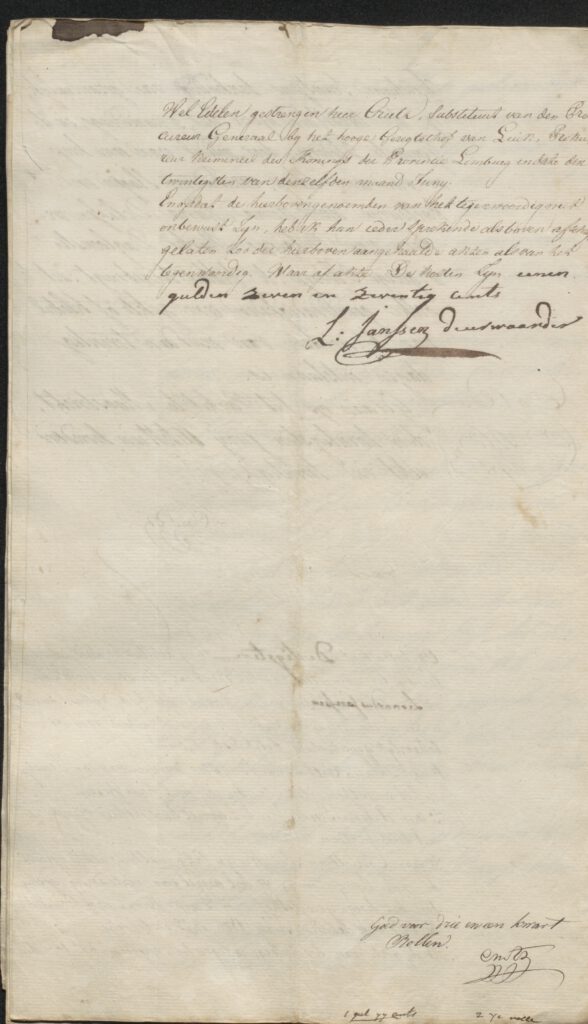 Wel Edelen gestrengen heer Cruts, Substituut van den Pro
cureur Generaal by het hooge Geregtshof van Luik,
des Konings der Provincie Limburg in date den
twintigsten van denzelfden maand Juny.
En opdat de hierbovengenoemden van het tegenwoordige niet
onbewust Zyn, heb ik hun ieder sprekende als boven afschrift
gelaten Zoo der hierboven aangehaalde akten als van het
tegenwoordig. Waar af akte. De kosten Zyn eenen
gulden zeven en zeventig cents
L: Janssen deurwaarder
Goed voor drie en een kwart
Rollen.
1 gul 77 cents